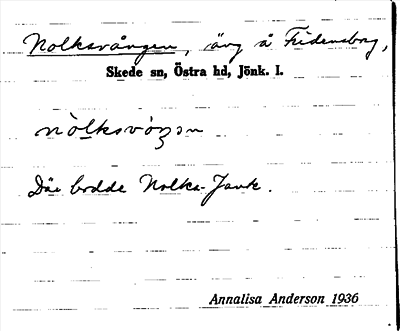 Nolksvången, äng å Fredensborg,
Skede sn, Östra hd, Jönk. l.
nòlksvóŋən
Där bodde Nolka-Jonk.
Annalisa Anderson 1936